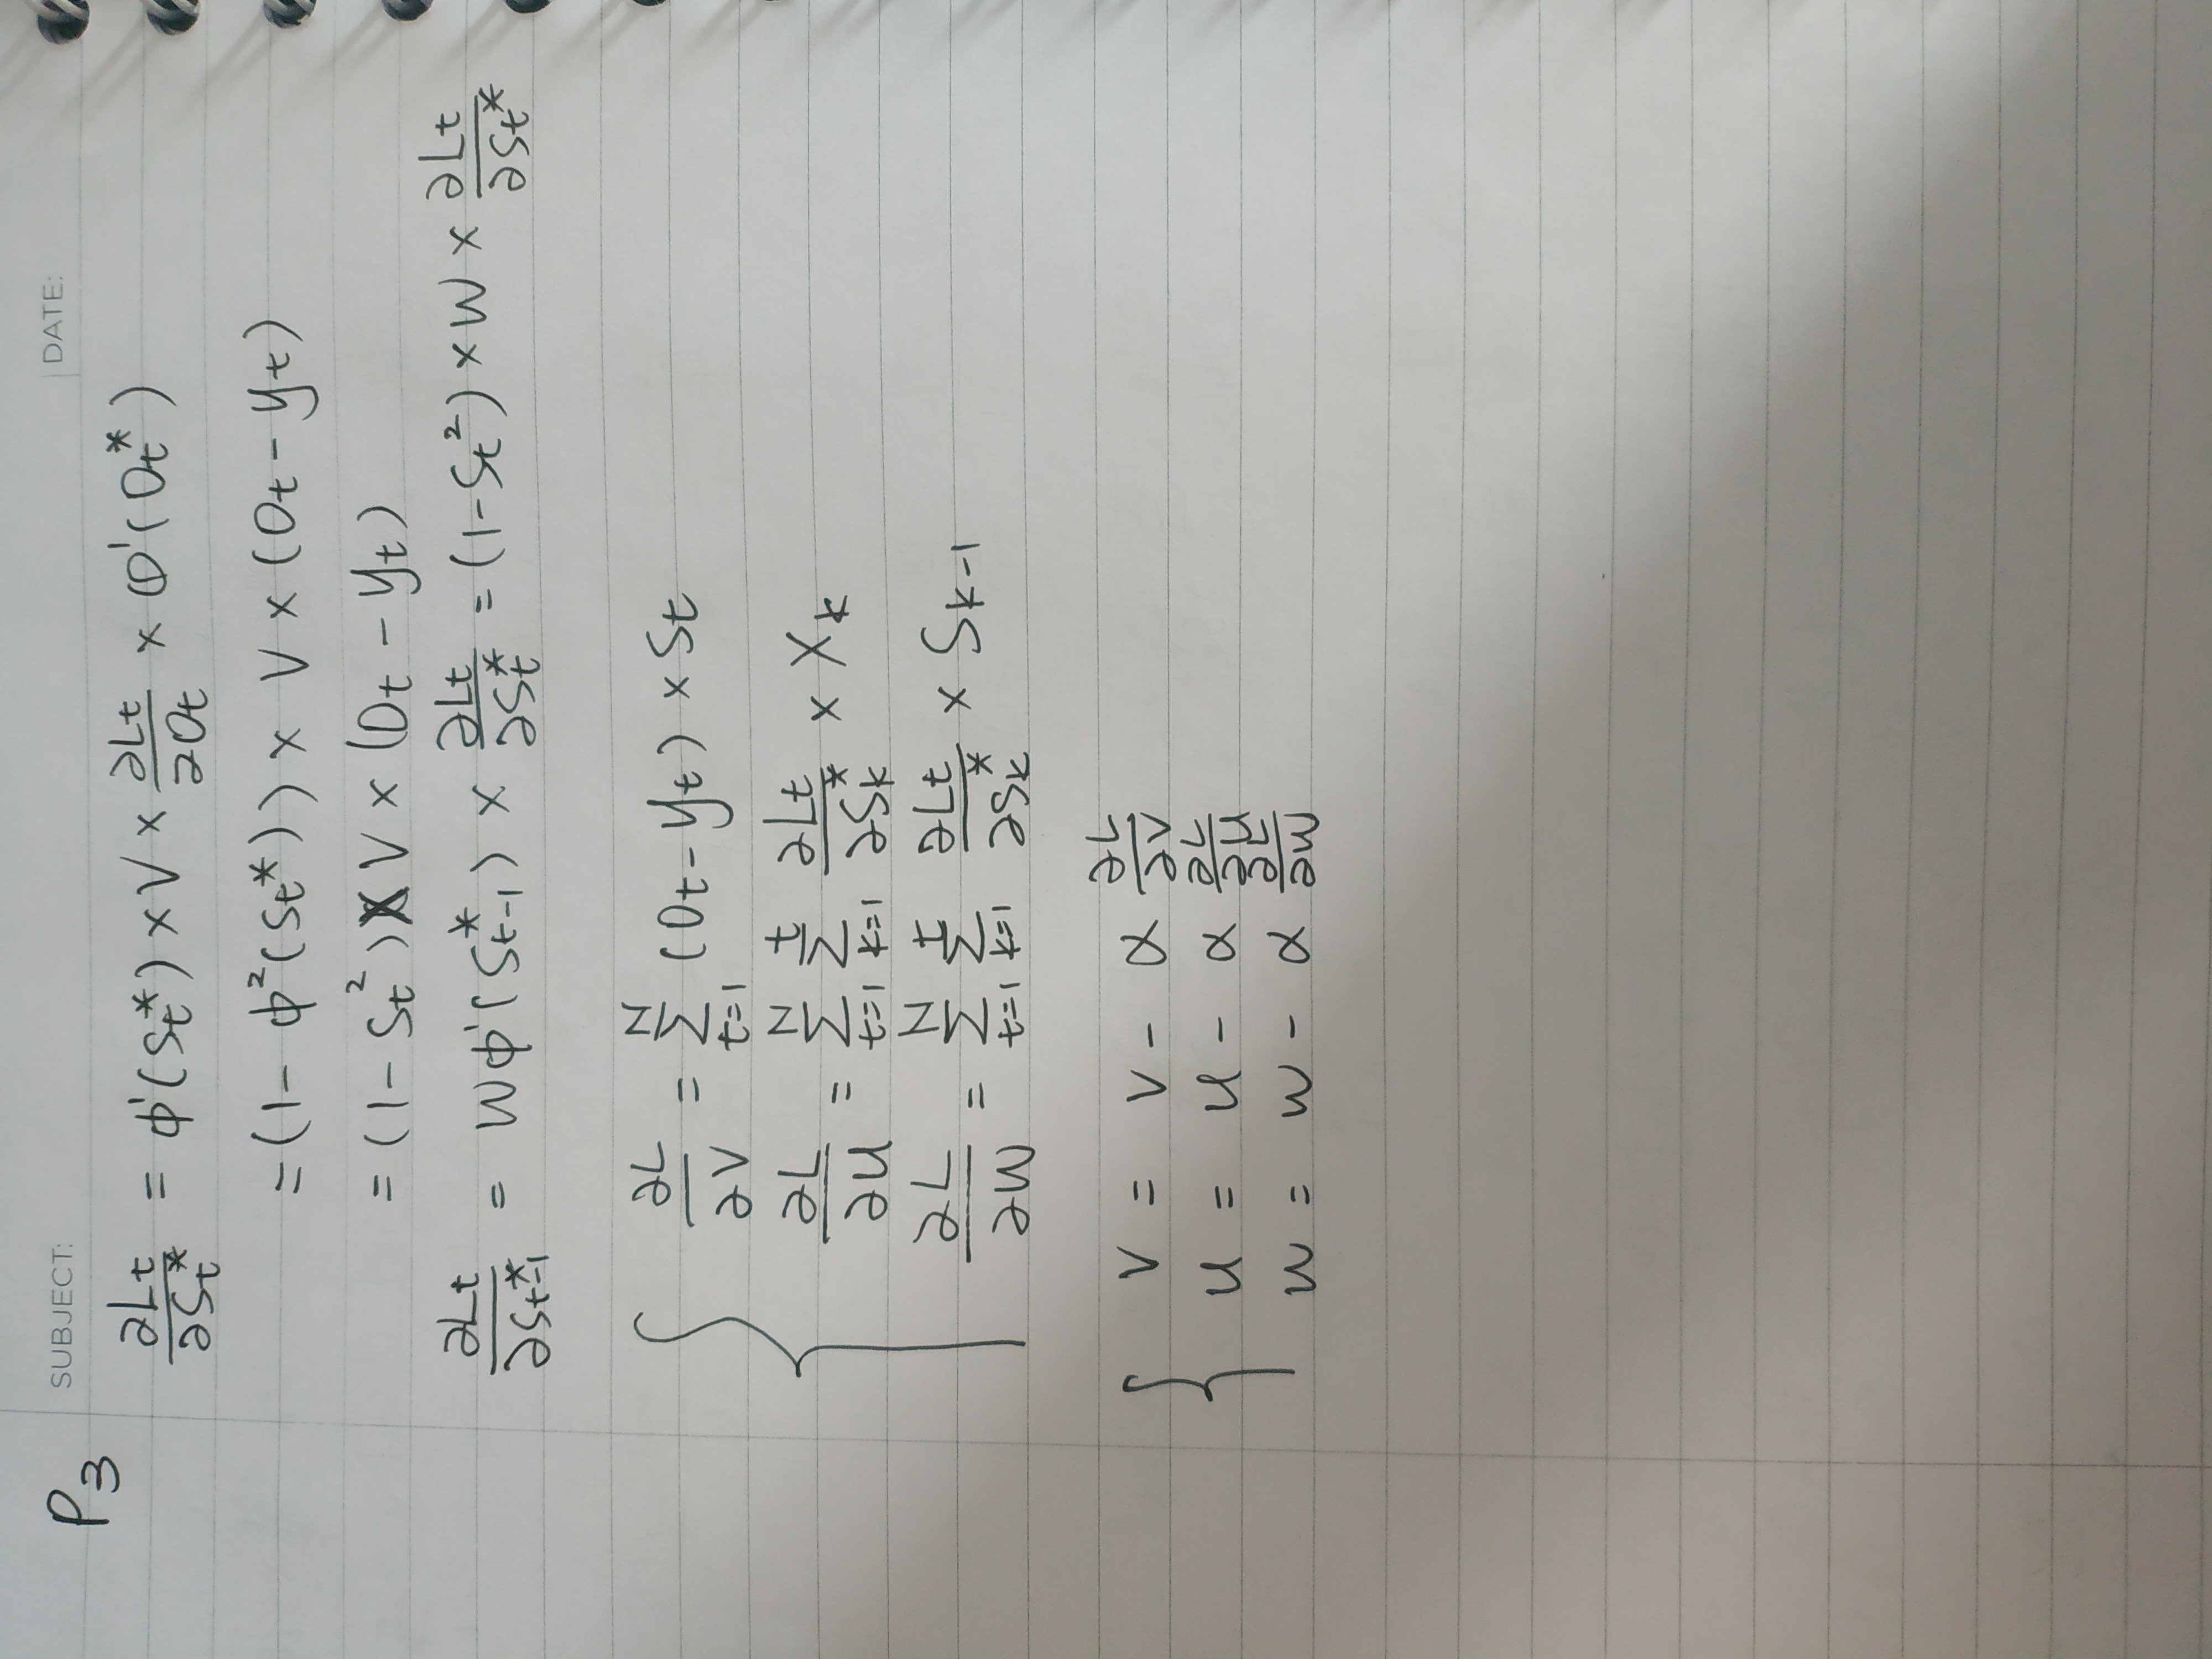 P3
SUBJECT:
DATE:
∂Lt/∂St* = ϕ'(St*) × V × ∂Lt/∂Ot × φ'(Ot*)
= (1 - ϕ²(St*)) × V × (Ot - yt)
= (1 - St²) × V × (Ot - yt)
∂Lt/∂St-1* = Wϕ'(St-1*) × ∂Lt/∂St* = (1-St²) × W × ∂Lt/∂St*
∂L/∂V = Σ_{t=1}^{N} (Ot - yt) × St
∂L/∂U = Σ_{t=1}^{N} Σ_{k=1}^{t} ∂Lt/∂Sk* × Xk
∂L/∂W = Σ_{t=1}^{N} Σ_{k=1}^{t} ∂Lt/∂Sk* × Sk-1
V = V - α ∂L/∂V
U = U - α ∂L/∂U
W = W - α ∂L/∂W